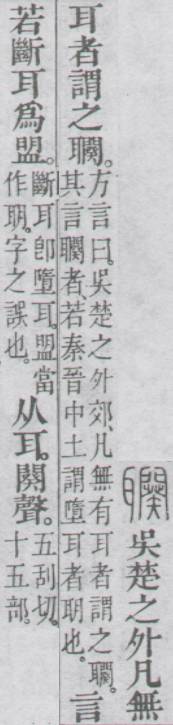 䎳 吳楚之外凡無
耳者謂之䎳。
方言曰。吳楚之外郊。凡無有耳者謂之䎳。
其言䎳者、若秦晉中土謂墮耳者𦕁也。
言
若斷耳爲盟。
斷耳卽墮耳。盟當
作𦕁。字之誤也。
从耳。闋聲。
五刮切。
十五部。